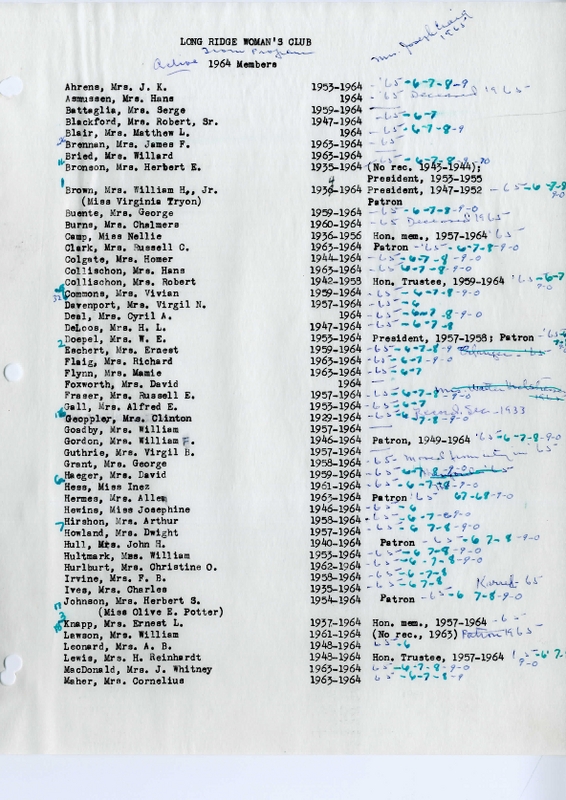 Mrs. Joseph Craig
1965
LONG RIDGE WOMAN'S CLUB
from Program
Active 1964 Members
Ahrens, Mrs. J. K. 1953-1964 '65-6-7-8-9
Asmussen, Mrs. Hans 1964 '65 Deceased 1965
Battaglia, Mrs. Serge 1959-1964
Blackford, Mrs. Robert, Sr. 1947-1964 -65-6-7
Blair, Mrs. Matthew L. 1964 -65-6-7-8-9
Brennan, Mrs. James F. 1963-1964 -65
Bried, Mrs. Willard 1963-1964
Bronson, Mrs. Herbert E. 1935-1964 (No rec. 1943-1944);
President, 1953-1955
Brown, Mrs. William H., Jr. 1934-1964 President, 1947-1952 -65-6-7-8
(Miss Virginia Tryon) Patron 9-0
Buente, Mrs. George 1959-1964 -65-6-7-8-9-0
Burns, Mrs. Chalmers 1960-1964 -65 Deceased 1965
Camp, Miss Nellie 1936-1956 Hon. mem., 1957-1964 '65
Clark, Mrs. Russell C. 1963-1964 Patron '65-6-7-8-9-0
Colgate, Mrs. Homer 1944-1964 -65-6-7-8-9-0
Collischon, Mrs. Hans 1963-1964 -65-6-7-8
Collischon, Mrs. Robert 1942-1958 Hon. Trustee, 1959-1964 '65-6-7
Commons, Mrs. Vivian 1959-1964 -65-6-7-8-9-0
Davenport, Mrs. Virgil N. 1957-1964 -65-6
Deal, Mrs. Cyril A. 1964 -65-6-7-8-9-0
DeLoos, Mrs. H. L. 1947-1964 -65-6-7-8
Doepel, Mrs. W. E. 1953-1964 President, 1957-1958; Patron
Eschert, Mrs. Ernest 1959-1964 -65-6-7-8-9
Flaig, Mrs. Richard 1963-1964 -65-6-7-8-9-0
Flynn, Mrs. Mamie 1963-1964 -65-6-7
Foxworth, Mrs. David 1964
Fraser, Mrs. Russell E. 1957-1964 -65-6-7-8-9
Gall, Mrs. Alfred E. 1953-1964 -65-6-7
Geoppler, Mrs. Clinton 1929-1964
Goadby, Mrs. William 1957-1964
Gordon, Mrs. William F. 1946-1964 Patron, 1949-1964 '65-6-7-8-9-0
Guthrie, Mrs. Virgil B. 1957-1964
Grant, Mrs. George 1958-1964
Haeger, Mrs. David 1959-1964
Hess, Miss Inez 1961-1964
Hermes, Mrs. Allen 1963-1964 Patron '65 67-68-9-0
Hewins, Miss Josephine 1946-1964 -65-6
Hirshon, Mrs. Arthur 1958-1964
Howland, Mrs. Dwight 1957-1964
Hull, Mrs. John H. 1940-1964 Patron -65-6 7-8-9-0
Hultmark, Mrs. William 1953-1964 -65-6 7-8-9-0
Hurlburt, Mrs. Christine O. 1962-1964
Irvine, Mrs. F. B. 1958-1964
Ives, Mrs. Charles 1935-1964
Johnson, Mrs. Herbert S. 1954-1964 Patron -65-6 7-8-9-0
(Miss Olive E. Potter)
Knapp, Mrs. Ernest L. 1937-1964 Hon. mem., 1957-1964 -65
Lawson, Mrs. William 1961-1964 (No rec., 1963) Patron 1965
Leonard, Mrs. A. B. 1948-1964 65-6
Lewis, Mrs. H. Reinhardt 1948-1964 Hon. Trustee, 1957-1964
MacDonald, Mrs. J. Whitney 1963-1964 65-6-7-8-9-0
Maher, Mrs. Cornelius 1963-1964 65-6-7-8-9